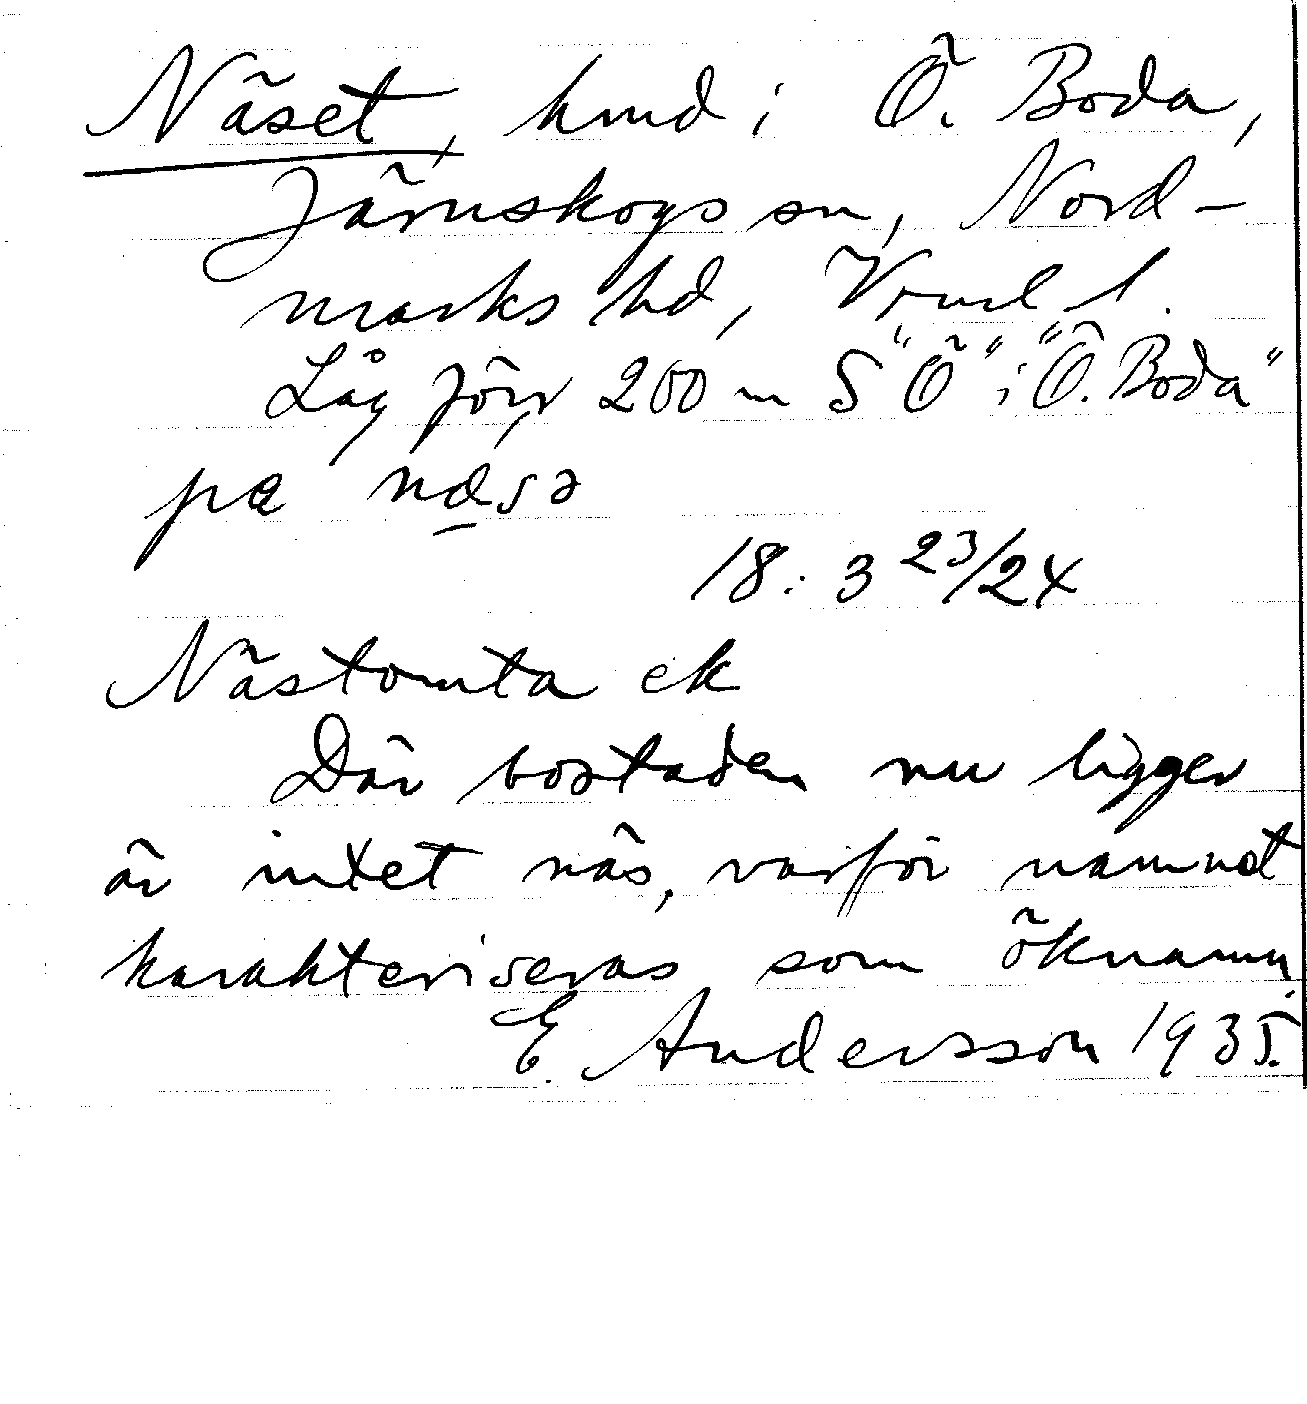 Näset, hmd i Ö. Boda,
Järnskogs sn, Nord-
marks hd, Vrml l.
Låg förr 200 m S "Ö" i "Ö. Boda"
pɑ næsə
18: 3 23/24
Nästomta ek
Där bostaden nu ligger
är intet näs, varför namnet
karakteriseras som öknamn.
E. Andersson 1935.